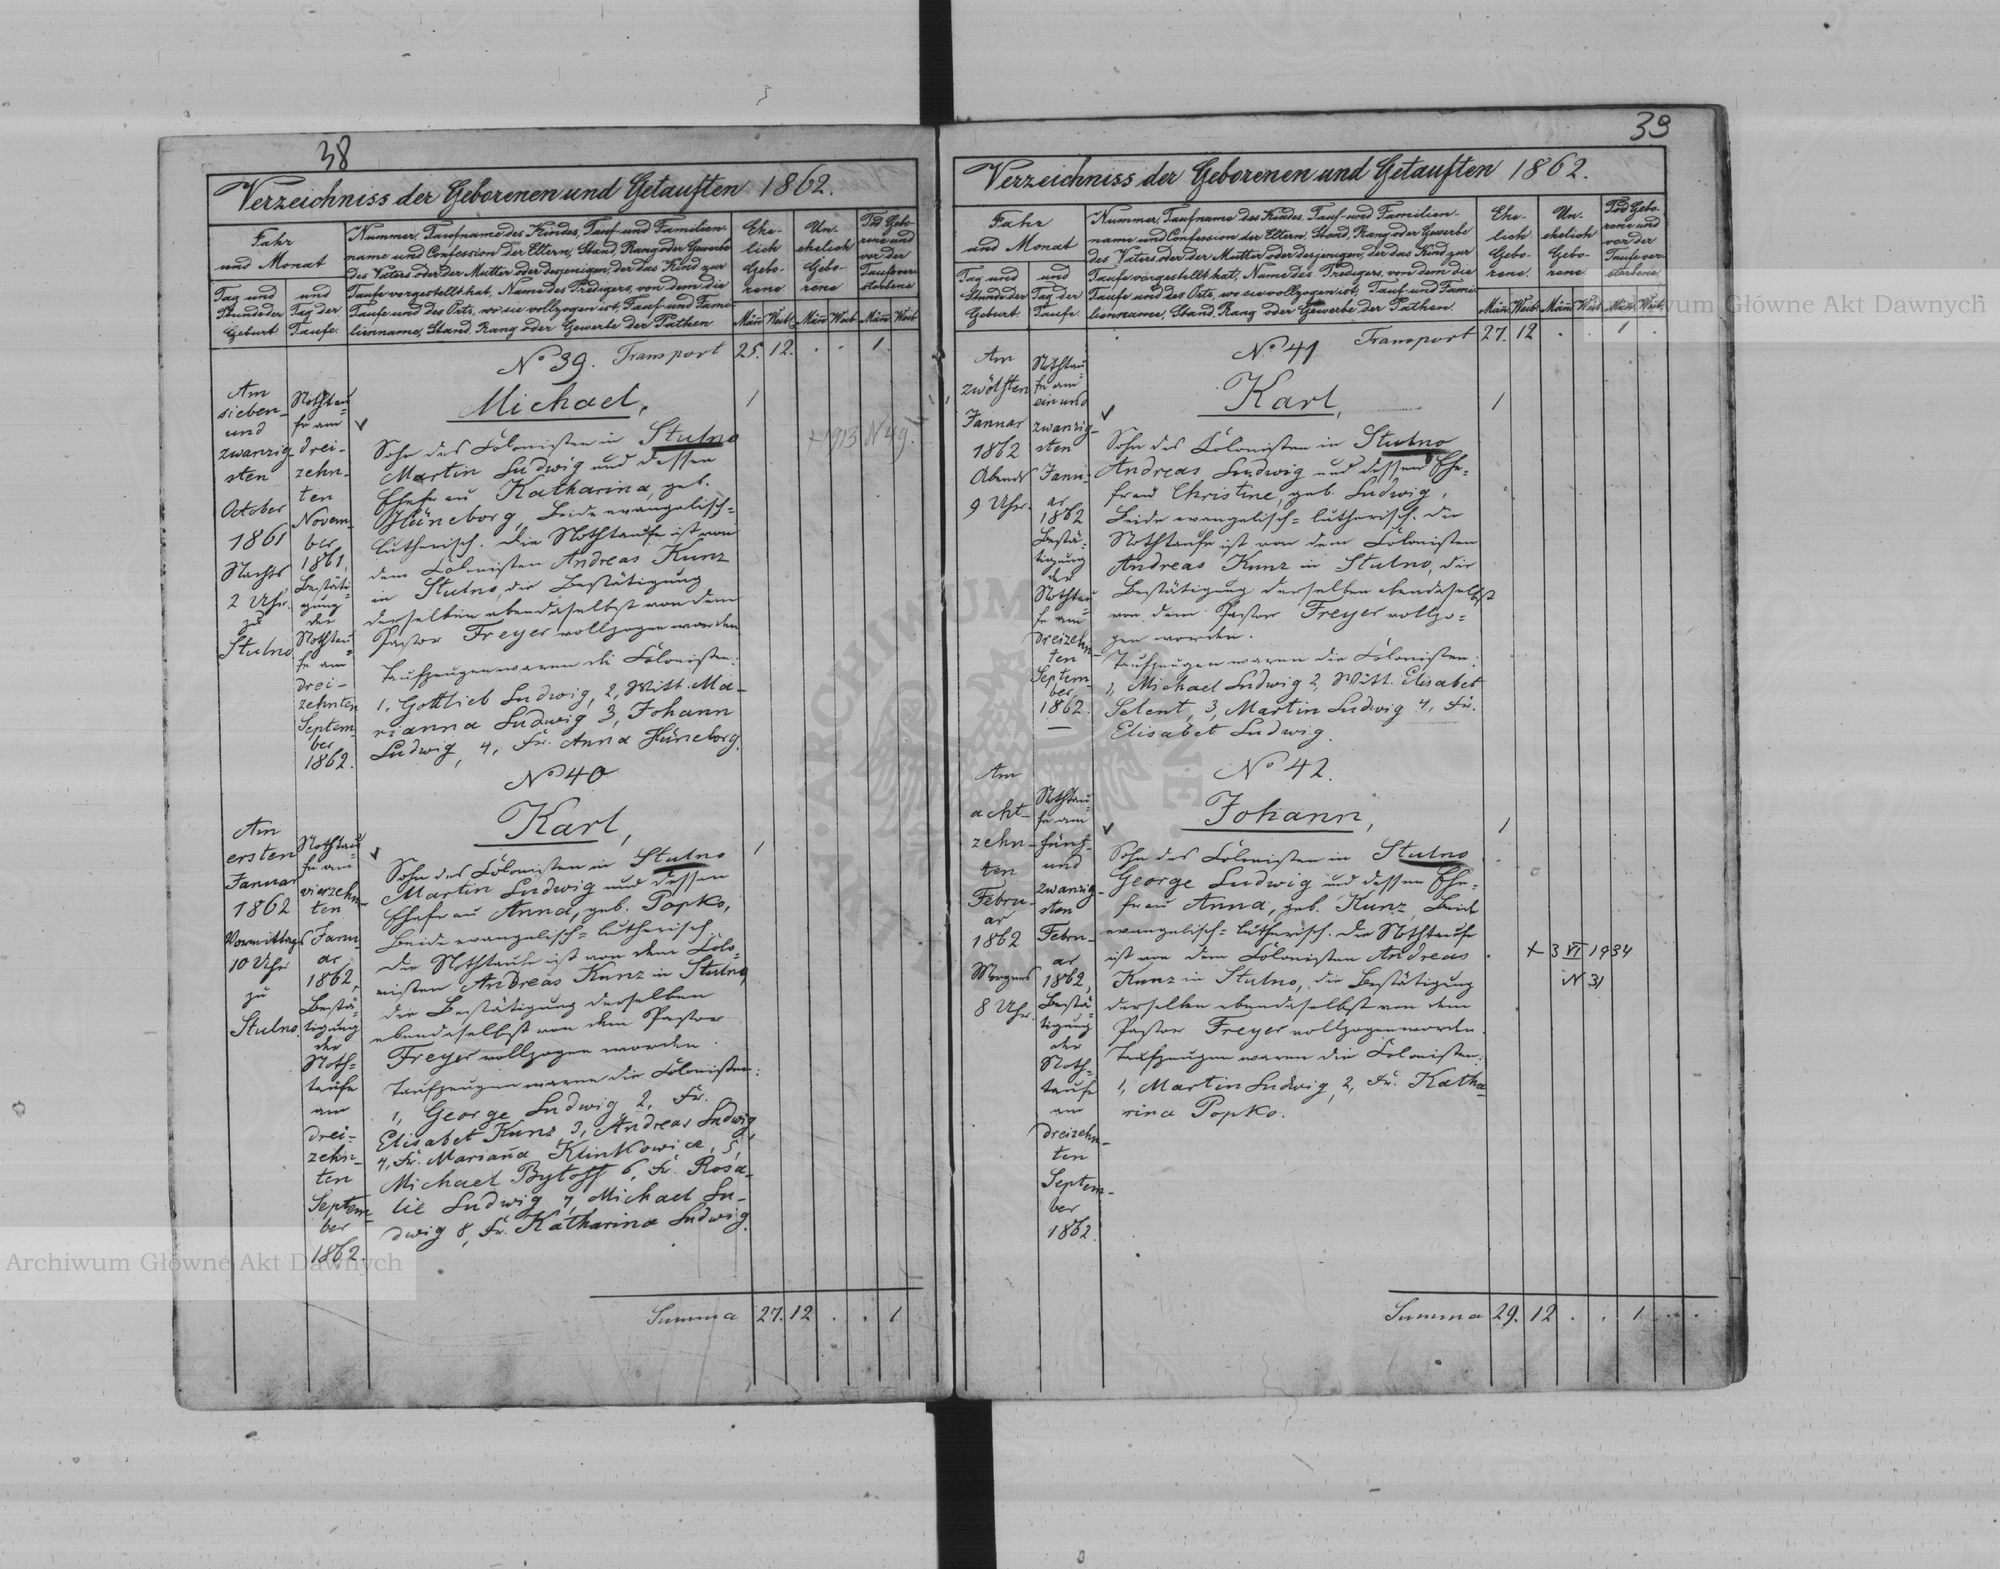 38
Verzeichniss der Geborenen und Getauften 1862.
Jahr
und Monat
Tag und
Stunde der
Geburt.
und
Tag der
Taufe.
Nummer, Taufname des Kindes, Tauf- und Familien-
name und Confession der Eltern, Stand, Rang oder Gewerbe
des Vaters oder der Mutter oder desjenigen, der das Kind zur
Taufe vorgestellt hat, Name des Predigers, von dem die
Taufe und des Orts, wo sie vollzogen ist, Tauf- und Fami-
lienname, Stand, Rang oder Gewerbe der Pathen.
Ehe-
lich
Gebo-
rene
Un-
ehelich
Gebo-
rene
Tod Gebo-
rene und
vor der
Taufe ver-
storbene
Män. Weib. Män. Weib. Män. Weib.
No 39. Transport 25. 12. . . 1.
Am
sieben-
und
zwanzig-
sten
October
1861
Nachts
2 Uhr.
zu
Stulno
Nothtau
fe am
drei-
zehn-
ten
Novem-
ber
1861,
Bestäti-
gung
der
Nothtau
fe am
drei-
zehnten
Septem-
ber
1862.
Michael, 1
Sohn des Colonisten in Stulno
Martin Ludwig und dessen
Ehefrau Katharina, geb.
Hüneborg, Beide evangelisch-
lutherisch. Die Nothtaufe ist von
dem Colonisten Andreas Kunz
in Stulno, die Bestätigung
derselben ebendaselbst von dem
Pastor Freyer vollzogen worden
Taufzeugen waren die Colonisten:
1, Gottlieb Ludwig, 2, Witt. Ma-
rianna Ludwig 3, Johann
Ludwig, 4, Fr. Anna Hüneborg.
+ 1913 N 49.
No 40
Am
ersten
Januar
1862
Vormittags
10 Uhr
zu
Stulno.
Nothtau
fe am
vierzehn-
ten
Janu-
ar
1862,
Bestä-
tigung
der
Noth-
taufe
am
drei-
zehn-
ten
Septem-
ber
1862.
Karl, 1
Sohn des Colonisten in Stulno
Martin Ludwig und dessen
Ehefrau Anna, geb. Popko,
Beide evangelisch-lutherisch
Die Nothtaufe ist von dem Colo-
nisten Andreas Kunz in Stulno,
die Bestätigung derselben
ebendaselbst von dem Pastor
Freyer vollzogen worden.
Taufzeugen waren die Colonisten:
1, George Ludwig 2, Fr.
Elisabet Kunz 3, Andreas Ludwig
4, Fr. Marianna Klinkowice, 5,
Michael Bytoff 6, Fr. Rosa-
lie Ludwig, 7, Michael Lu-
dwig 8, Fr. Katharina Ludwig.
Summa 27. 12 . . 1
39
Verzeichniss der Geborenen und Getauften 1862.
Jahr
und Monat
Tag und
Stunde der
Geburt.
und
Tag der
Taufe.
Nummer, Taufname des Kindes, Tauf- und Familien-
name und Confession der Eltern, Stand, Rang oder Gewerbe
des Vaters oder der Mutter oder desjenigen, der das Kind zur
Taufe vorgestellt hat, Name des Predigers, von dem die
Taufe und des Orts, wo sie vollzogen ist, Tauf- und Fami-
lienname, Stand, Rang oder Gewerbe der Pathen.
Ehe-
lich
Gebo-
rene.
Un-
ehelich
Gebo-
rene
Tod Gebo-
rene und
vor der
Taufe ver-
storbene.
Män. Weib. Män. Weib. Män. Weib.
No 41 Transport 27. 12 . . 1 .
Am
zwölften
Januar
1862
Abends
9 Uhr.
Nothtau-
fe am
ein und
zwanzig-
sten
Janu-
ar
1862
Bestä-
tigung
der
Nothtau
fe am
dreizehn-
ten
Septem-
ber,
1862.
Karl, 1
Sohn des Colonisten in Stulno
Andreas Ludwig und dessen Ehe-
frau Christine, geb. Ludwig,
Beide evangelisch-lutherisch. Die
Nothtaufe ist von dem Colonisten
Andreas Kunz in Stulno, die
Bestätigung derselben ebendaselbst
von dem Pastor Freyer vollzo-
gen worden.
Taufzeugen waren die Colonisten:
1, Michael Ludwig 2, Witt. Elisabet
Selent, 3, Martin Ludwig 4, Fr.
Elisabet Ludwig.
No 42.
Am
acht-
zehn-
ten
Febru-
ar
1862
Morgens
8 Uhr.
Nothtau
fe am
fünf-
und
zwanzig-
sten
Febru-
ar
1862,
Bestä-
tigung
der
Noth-
taufe
am
dreizehn-
ten
Septem-
ber
1862.
Johann, 1
Sohn des Colonisten in Stulno
George Ludwig und dessen Ehe-
frau Anna, geb. Kunz, Beide
evangelisch-lutherisch. Die Nothtaufe
ist von dem Colonisten Andreas
Kunz in Stulno, die Bestätigung
derselben ebendaselbst von dem
Pastor Freyer vollzogen worden.
Taufzeugen waren die Colonisten:
1, Martin Ludwig, 2, Fr. Katha-
rina Popko.
+ 3 VI 1934
N 31
Summa 29. 12 . . 1 . .
Archiwum Główne Akt Dawnych
Archiwum Główne Akt Dawnych